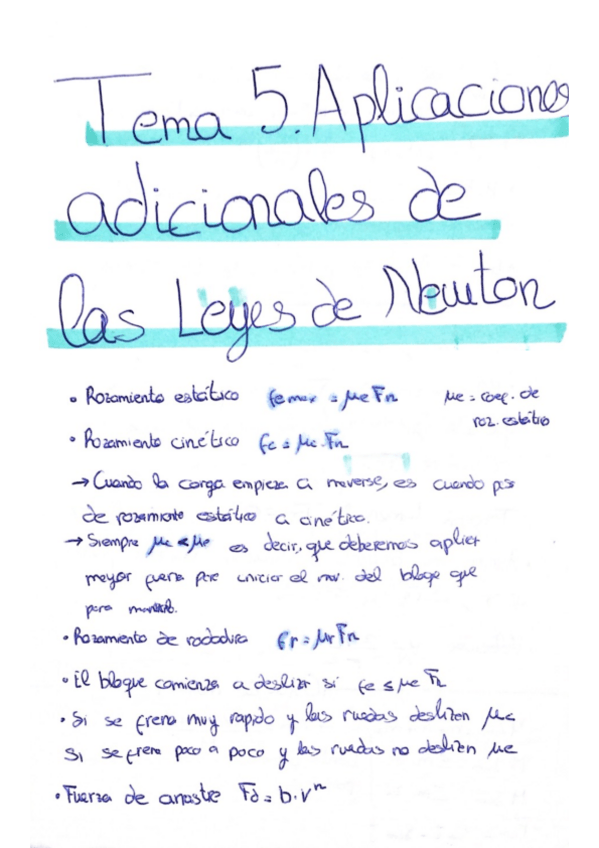 Tema 5. Aplicaciones
adicionales de
las Leyes de Newton
• Rozamiento estático fe max = μe Fn μe = coef. de
roz. estático
• Rozamiento cinético fc = μc Fn
→ Cuando la carga empieza a moverse, es cuando pasa
de rozamiento estático a cinético.
→ Siempre μc < μe es decir, que deberemos aplicar
mayor fuerza para iniciar el mov. del bloque que
para
• Rozamiento de rodadura fr = μr Fn
• El bloque comienza a deslizar si fe ≤ μe Fn
• Si se frena muy rapido y las ruedas deslizan μc
Si se frena poco a poco y las ruedas no deslizan μe
• Fuerza de arrastre Fd = b·vⁿ